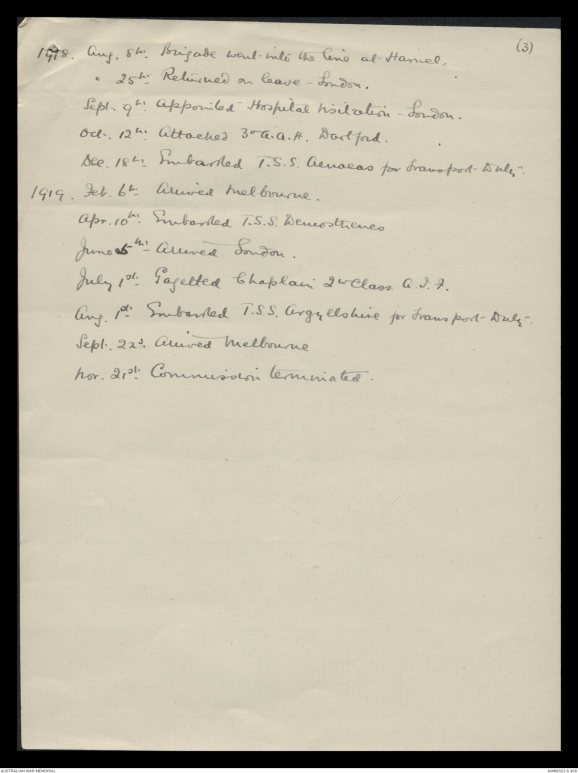 (3)
1918. Aug. 8th. Brigade went into the line at Hamel.
" 25th. Returned on leave - London.
Sept. 9th. Appointed Hospital Visitation - London.
Oct. 12th. Attached 3rd A.A.H. Dartford.
Dec. 18th. Embarked T.S.S. Aenaeas for Transport Duty.
1919. Feb. 6th. Arrived Melbourne.
Apr. 10th. Embarked T.S.S. Demosthenes
June 5th - Arrived London.
July 1st. Gazetted Chaplain 2nd Class A.I.F.
Aug. 1st. Embarked T.S.S. Argyllshire for Transport Duty.
Sept. 22d. Arrived Melbourne
Nov. 21st. Commission terminated.
AUSTRALIAN WAR MEMORIAL